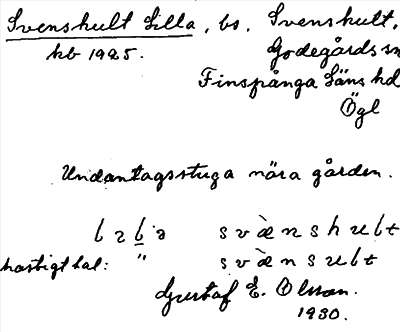 Svenshult Lilla, bs. Svenshult,
kb 1925. Godegårds sn
Finspånga Läns hd
Ögl
Undantagsstuga nära gården.
svæ̀nshult
hastigt tal: " svæ̀nsult
Gustaf E. Olsson.
1930.